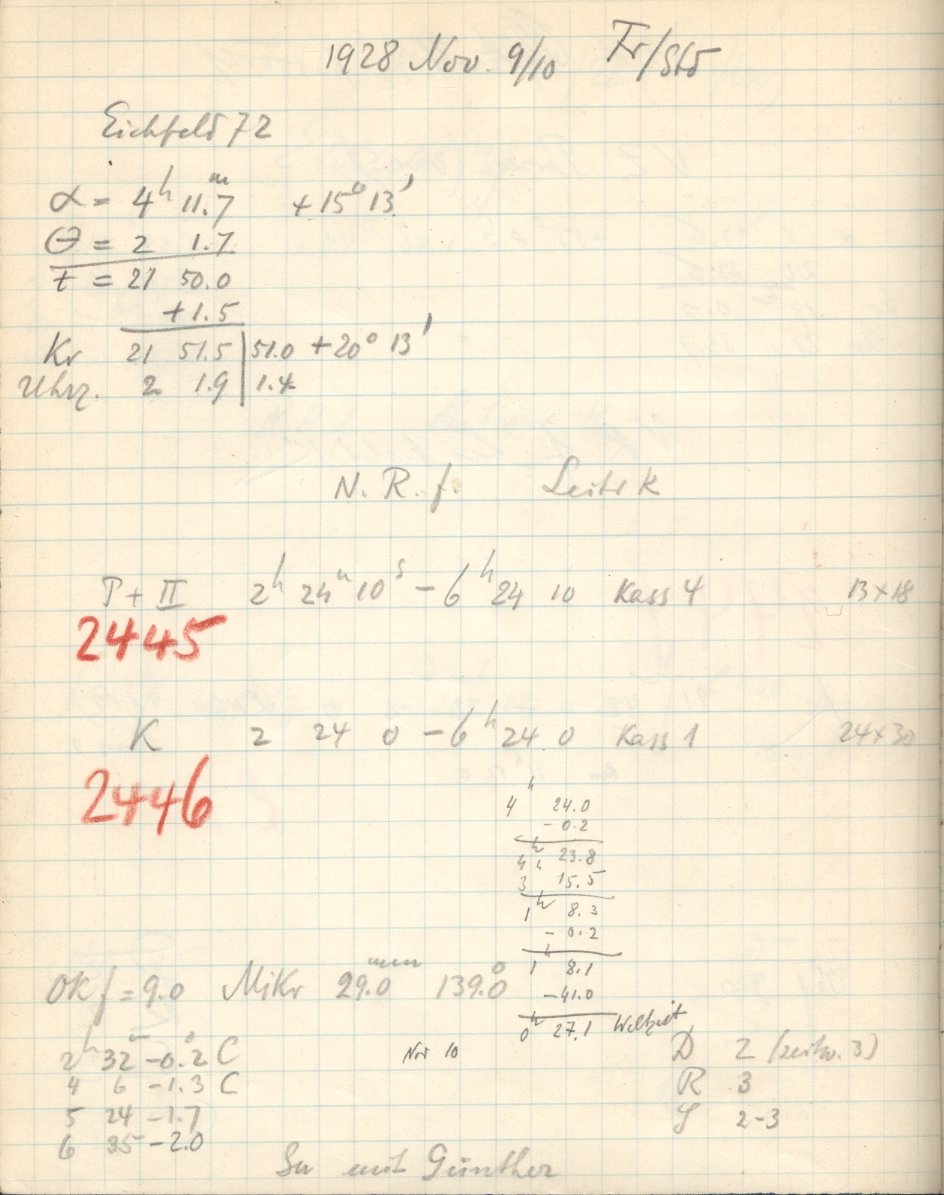 1928 Nov. 9/10 Fr/Stb
Eichfeld 72
α = 4h 11.7m +15° 13'
Θ = 2 1.7
t = 21 50.0
+1.5
Kr 21 51.5 | 51.0 +20° 13'
Uhrz. 2 1.9 | 1.4
N. R. f. Leitr K
P + II 2h 24m 10s - 6h 24 10 Kass 4 13 x 18
2445
K 2 24 0 - 6h 24 0 Kass 1 24 x 30
2446
4h 24.0
- 0.2
4h 23.8
3 15.5
1h 8.3
- 0.2
1 8.1
-41.0
0h 27.1 Weltzeit
Nov 10
OK f = 9.0 Mikr 29.0mm 139.0°
2h 32m -0.°2 C
4 6 -1.3 C
5 24 -1.7
6 35 -2.0
D 2 (zeitw. 3)
R 3
S 2-3
Su mit Günther